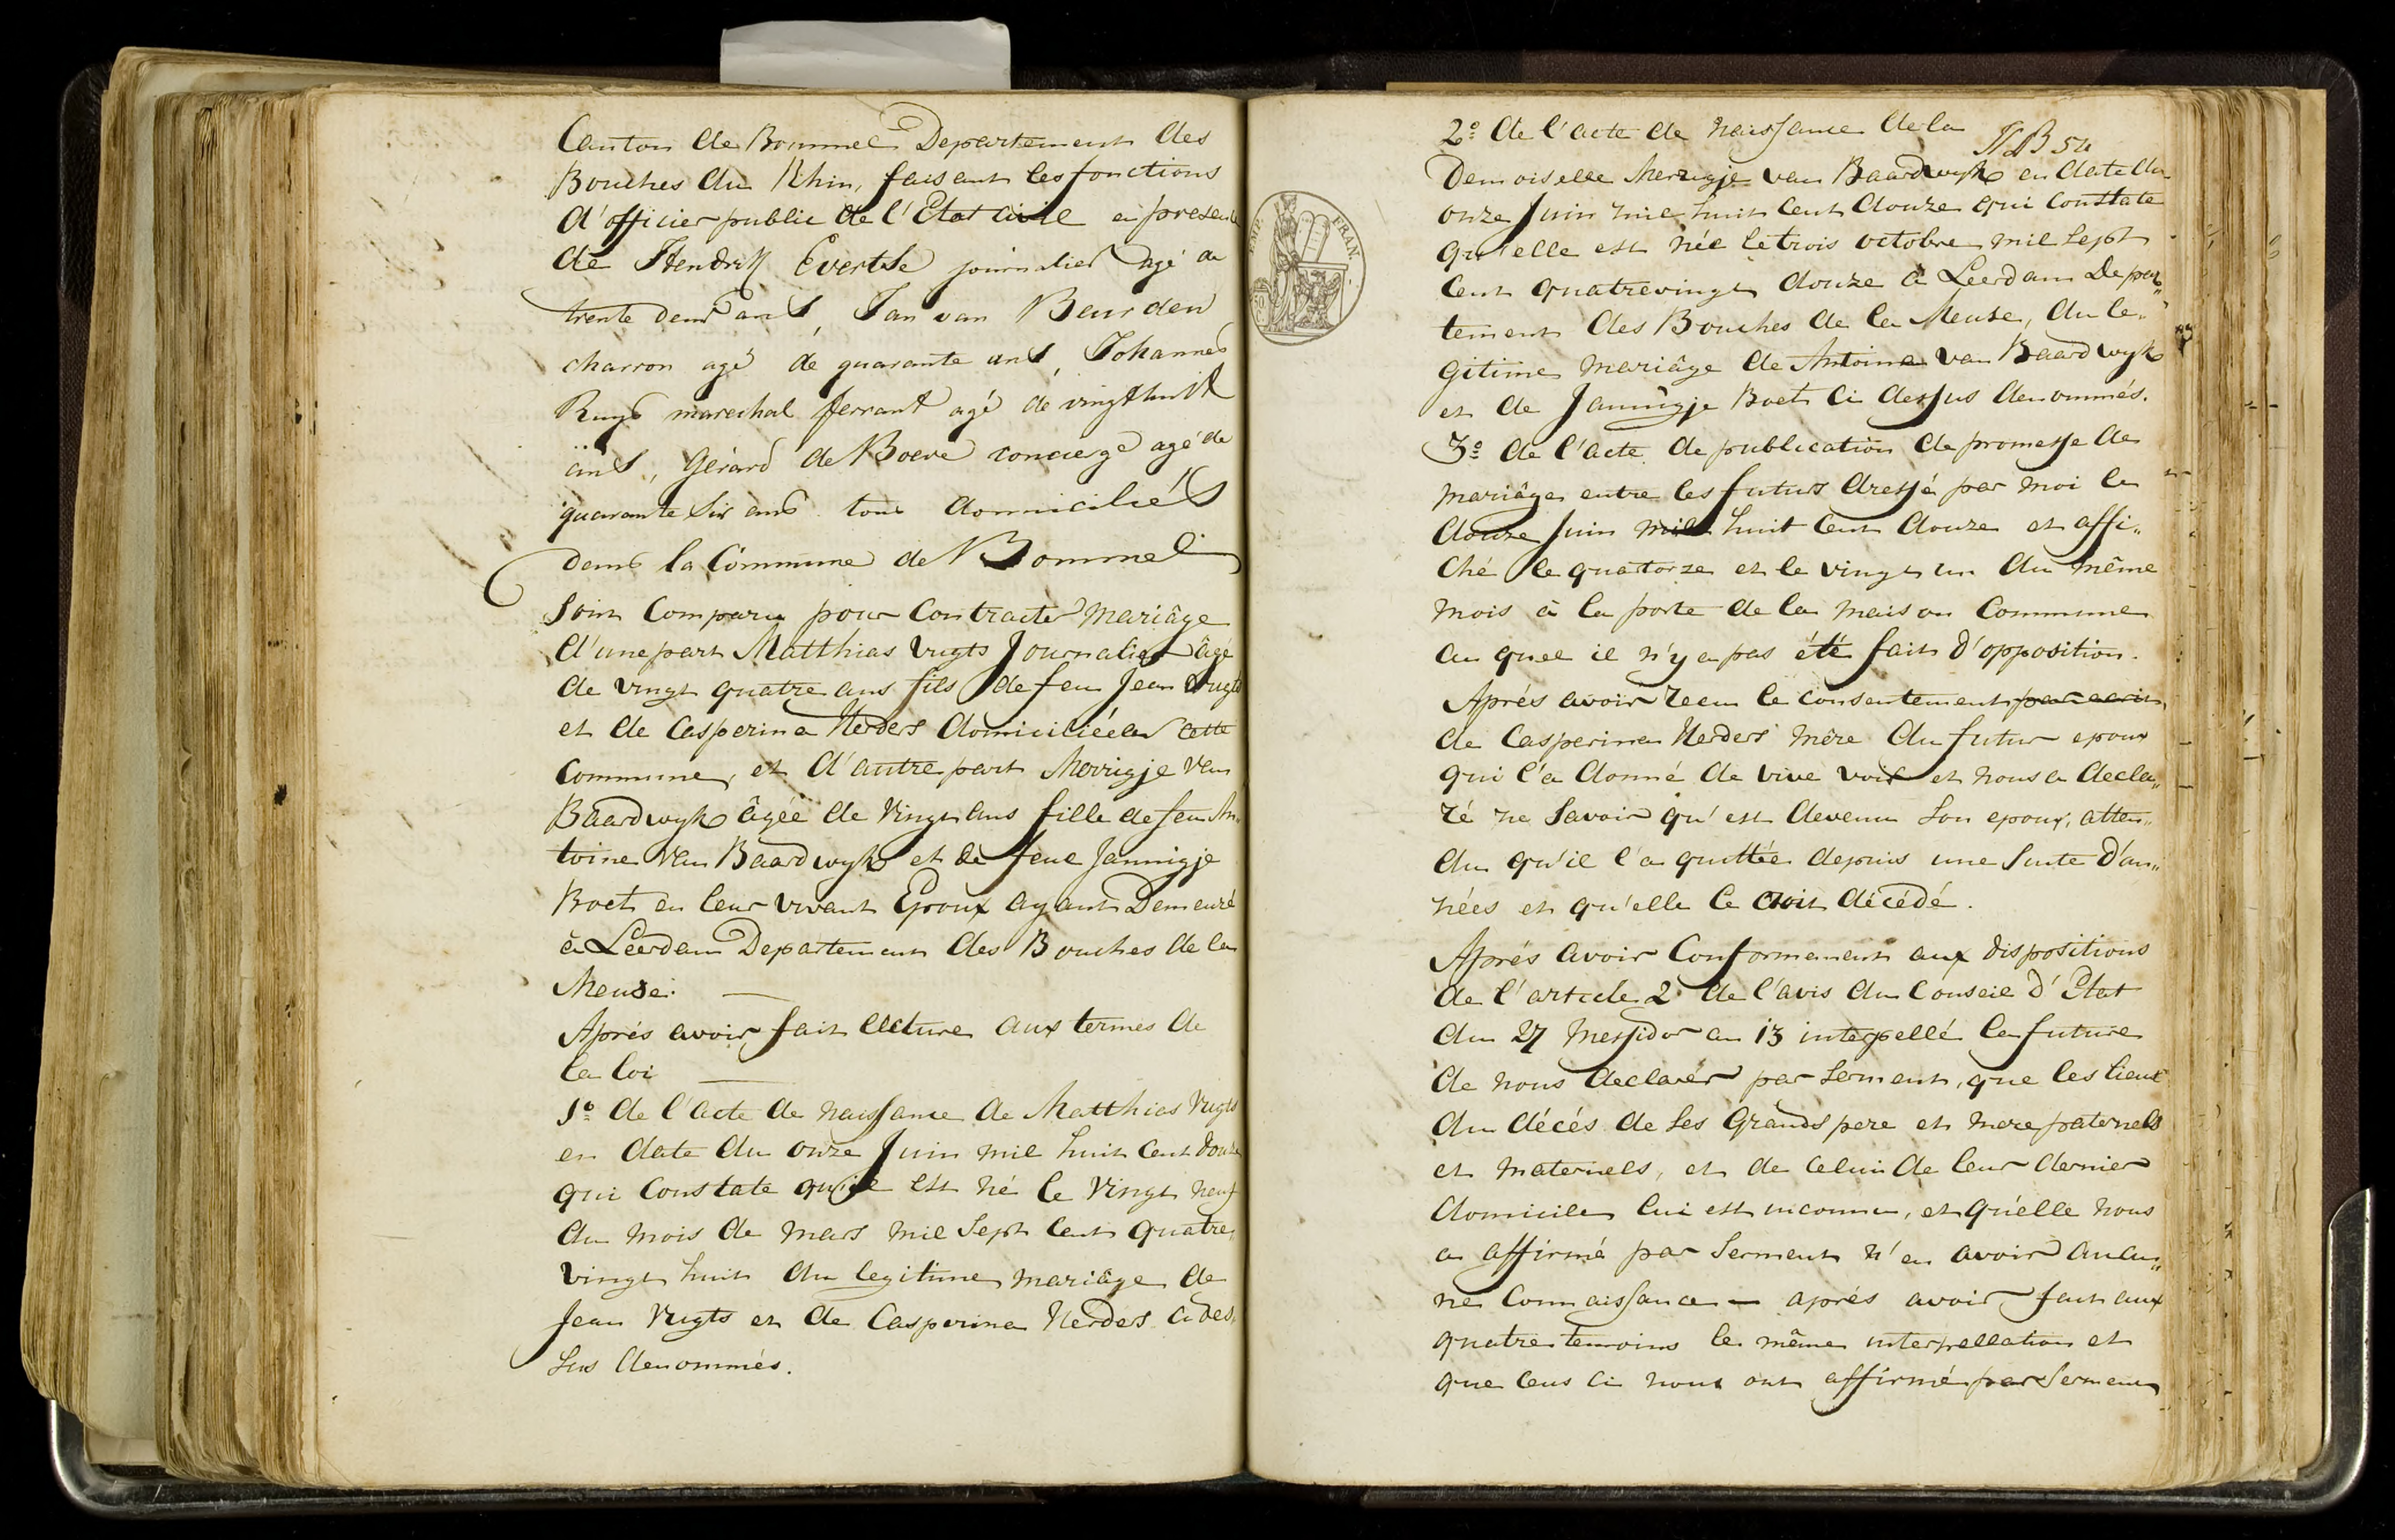 Canton de Bommel Departement des
Bouches du Rhin, faisant les fonctions
d'officier public de l'Etat civile en presence
de Hendrik Evertse journalier agé de
trente deux ans, Jan van Beurden
charron agé de quarante ans, Johannes
Ruys marechal ferrant agé de vingt huit
ans, Gerard de Boeve concierge agé de
quarante six ans tous domiciliés
dans la Commune de Bommel
sont comparu pour contracter mariâge
d'une part Matthias Vugts Journalier âgé
de vingt quatre ans fils de feu Jean Vugts
et de Casperina Herders domiciliée en cette
Commune, et d'autre part Merrigje van
Baardwyk âgée de vingt ans fille de feu An„
toine van Baardwyk et de feue Jannigje
Boet en leur vivant Epoux ayant Demeuré
à Leerdam Departement des Bouches de la
Meuse. —
Aprés avoir fait lecture aux termes de
la loi —
1º de l'acte de naissance de Matthias Vugts
en date du onze Juin mil huit cent douze
qui constate qu'il est né le vingt neuf
du mois de mars mil sept cent quatre„
vingt huit du legitime mariâge de
Jean Vugts et de Casperina Herders ci des„
sus denommés.
2º de l'acte de naissance de la
NB 54
Demoiselle Merrigje van Baardwyk en date du
onze Juin mil huit cent douze qui constate
qu'elle est née le trois octobre mil sept
cent quatrevingt douze à Leerdam Depar„
tement des Bouches de la Meuse, du le„
gitime mariâge de Antoine van Baardwyk
et de Jannigje Boet ci dessus denommés.
3º de l'acte de publication de promesse de
mariâge entre les futurs dressé par moi le
douze Juin mil huit cent douze et affi„
ché le quatorze et le vingt un du même
mois à la porte de la maison Commune
au quel il n'y a pas été fait d'opposition.
Aprés avoir recu le consentement par ecrit,
de Casperina Herders mére du futur epoux
qui l'a donné de vive voix et nous a decla„
ré ne savoir qu'est devenu son epoux, atten„
du qu'il l'a quittée depuis une suite d'an„
nées et qu'elle le croit décédé.
Aprés avoir conformement aux dispositions
de l'article 2 de l'avis du Conseil d'Etat
du 27 Messidor an 13 interpellé la future
de nous declarer par serment, que les lieux
du décés de ses Grands pere et mere paternels
et maternels, et de celui de leur dernier
domicile lui est inconnu, et qu'elle nous
a affirmé par serment n'en avoir aucu„
ne connaissance — aprés avoir fait aux
quatre temoins la même interpellation et
que ceus ci nous ont affirmé par serment
EMP. FRAN.